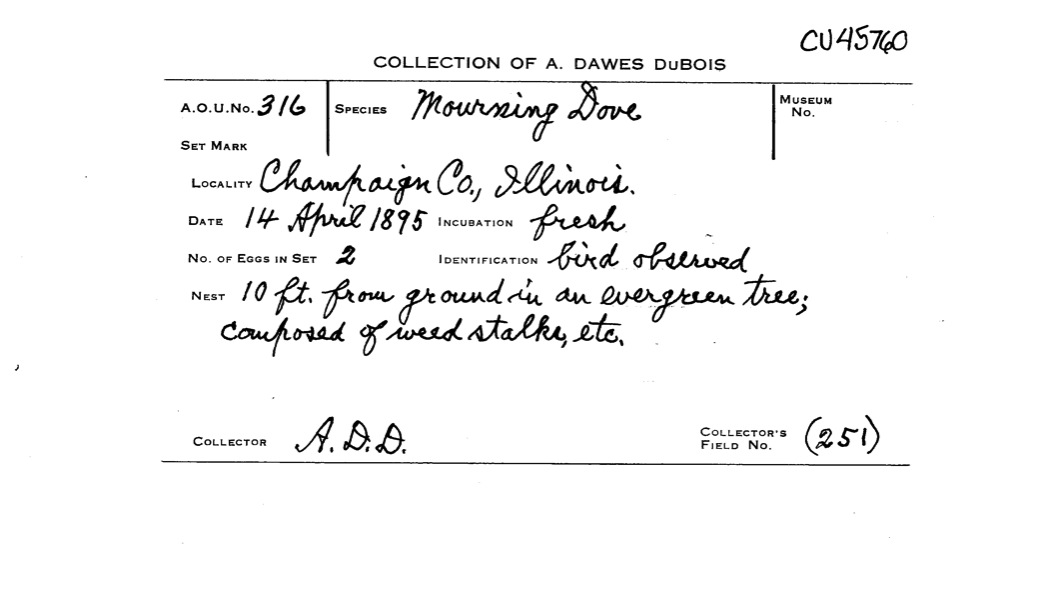 CU45760
COLLECTION OF A. DAWES DuBOIS
A.O.U.No. 316 SPECIES Mourning Dove MUSEUM No.
SET MARK
LOCALITY Champaign Co., Illinois.
DATE 14 April 1895 INCUBATION fresh
No. of Eggs in Set 2 IDENTIFICATION bird observed
NEST 10 ft. from ground in an evergreen tree;
composed of weed stalks, etc.
COLLECTOR A.D.D. COLLECTOR'S FIELD No. (251)